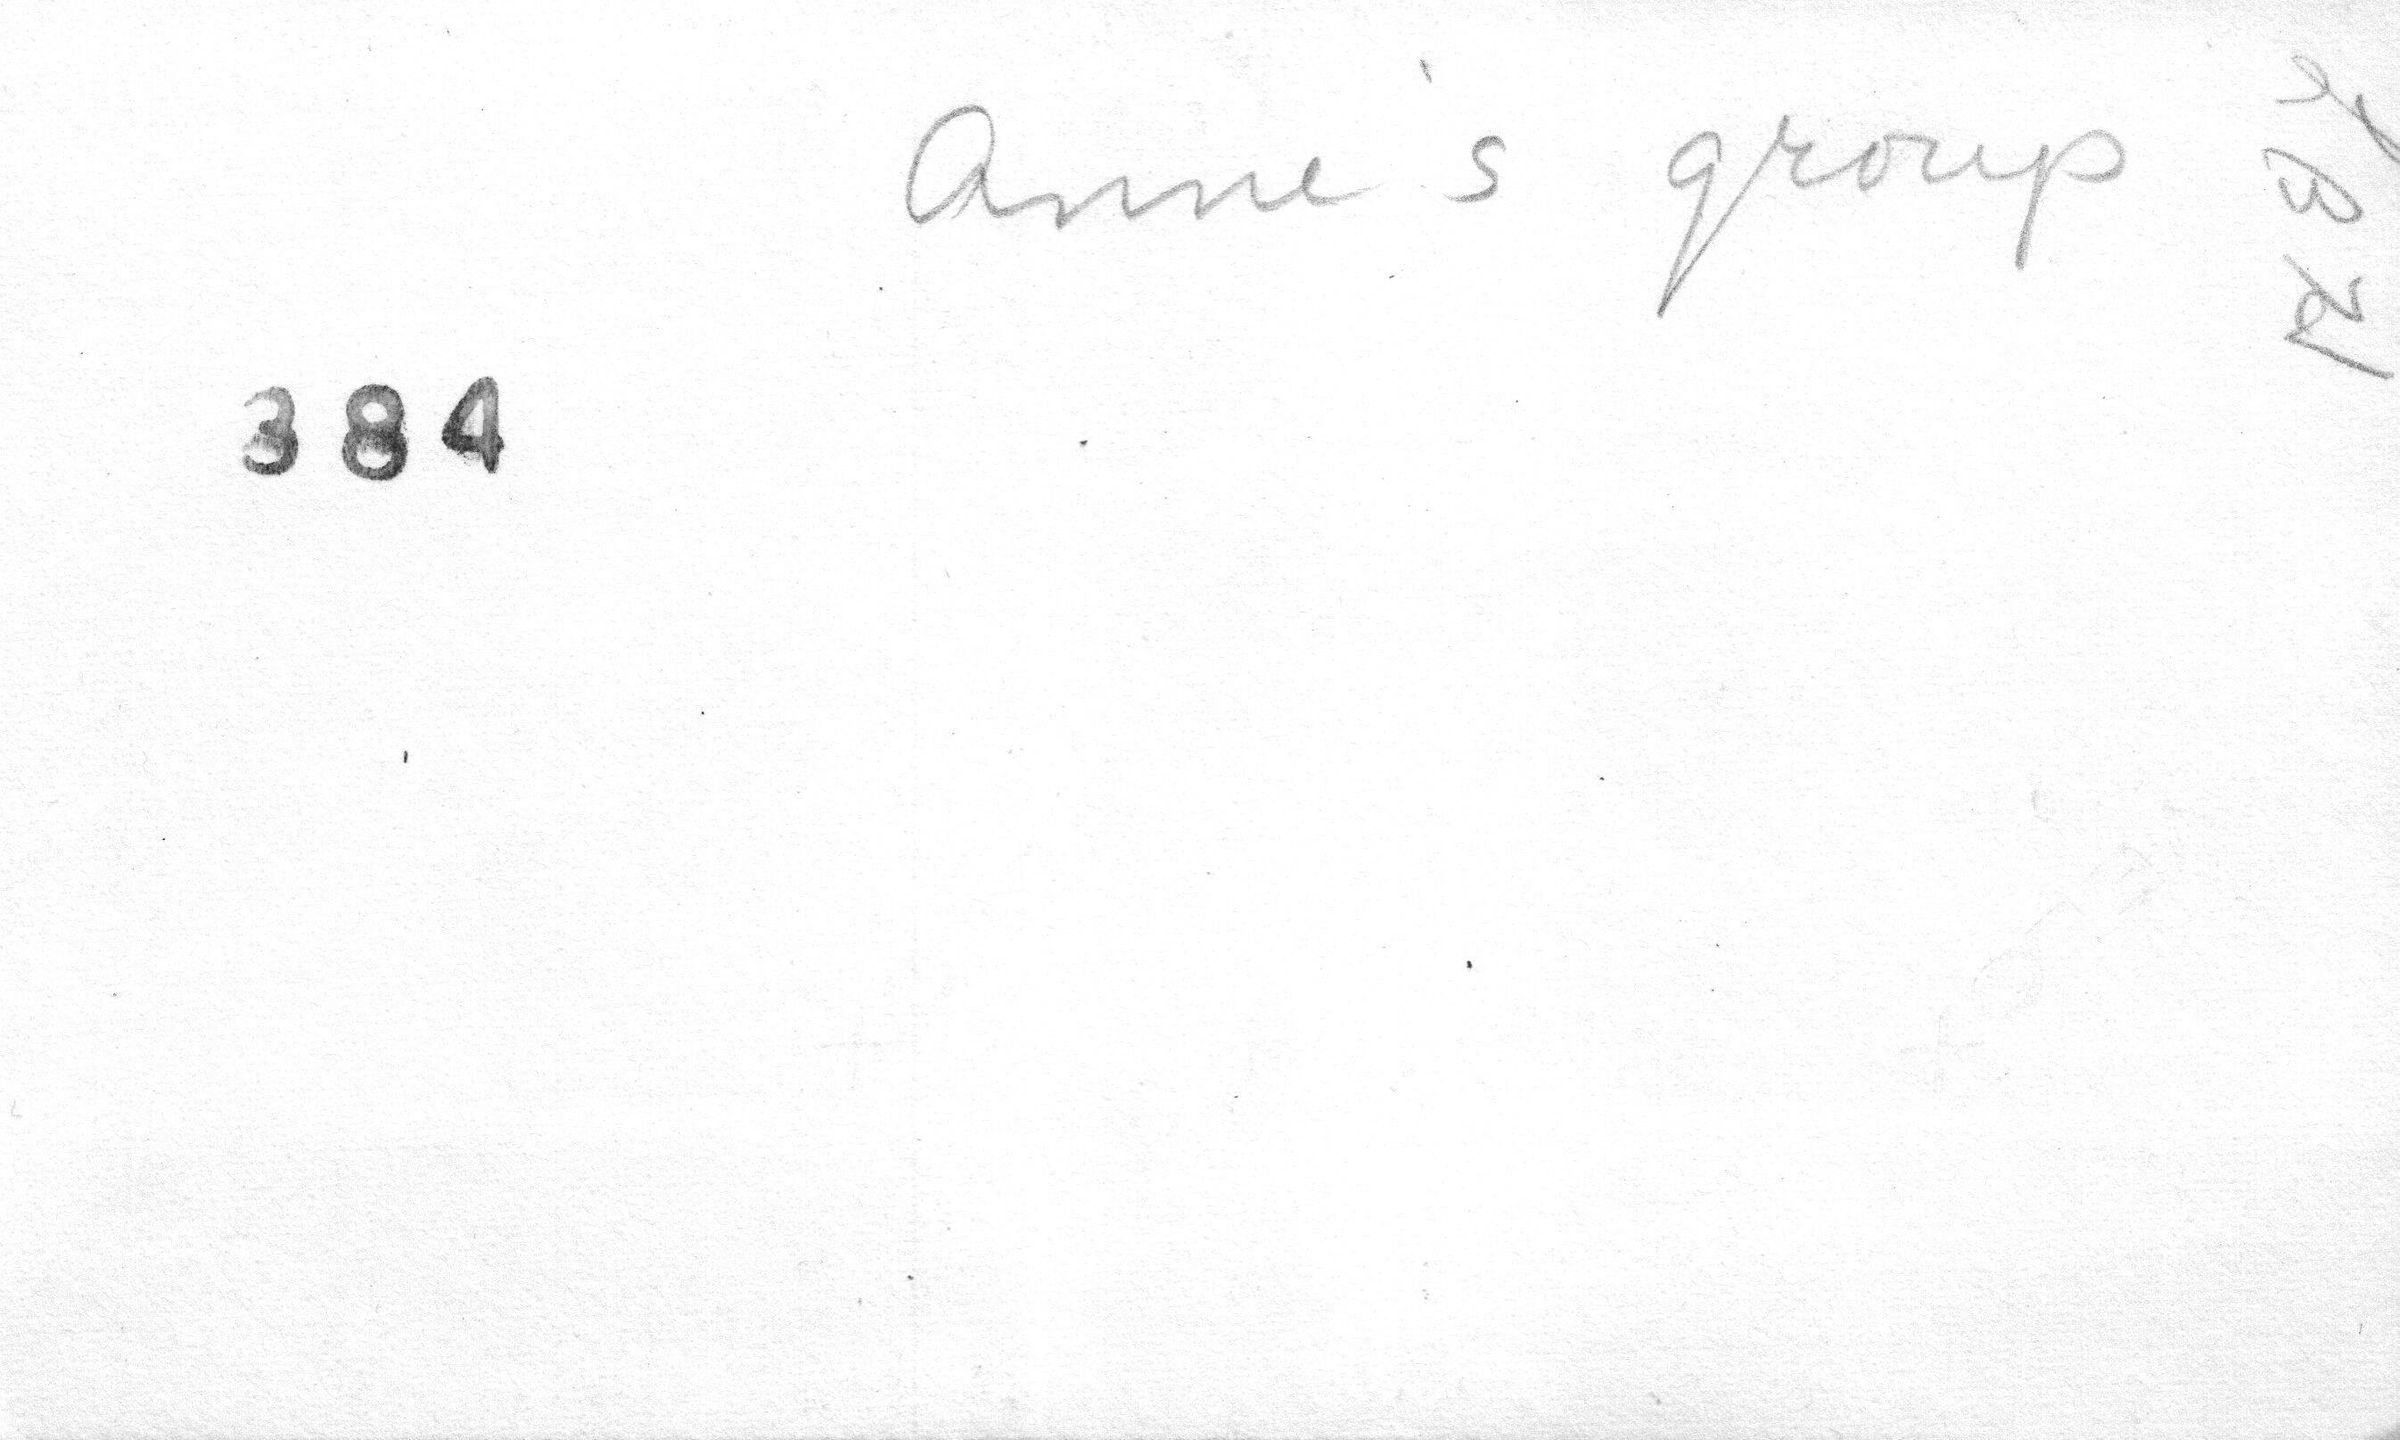 Anne's group
384